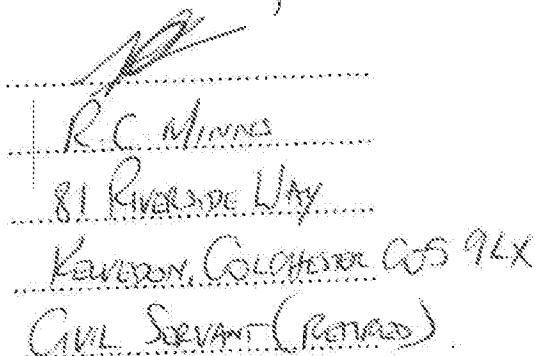 R. C. MINNS
81 RIVERSIDE WAY
KELVEDON, COLCHESTER CO5 9LX
CIVIL SERVANT (RETIRED)